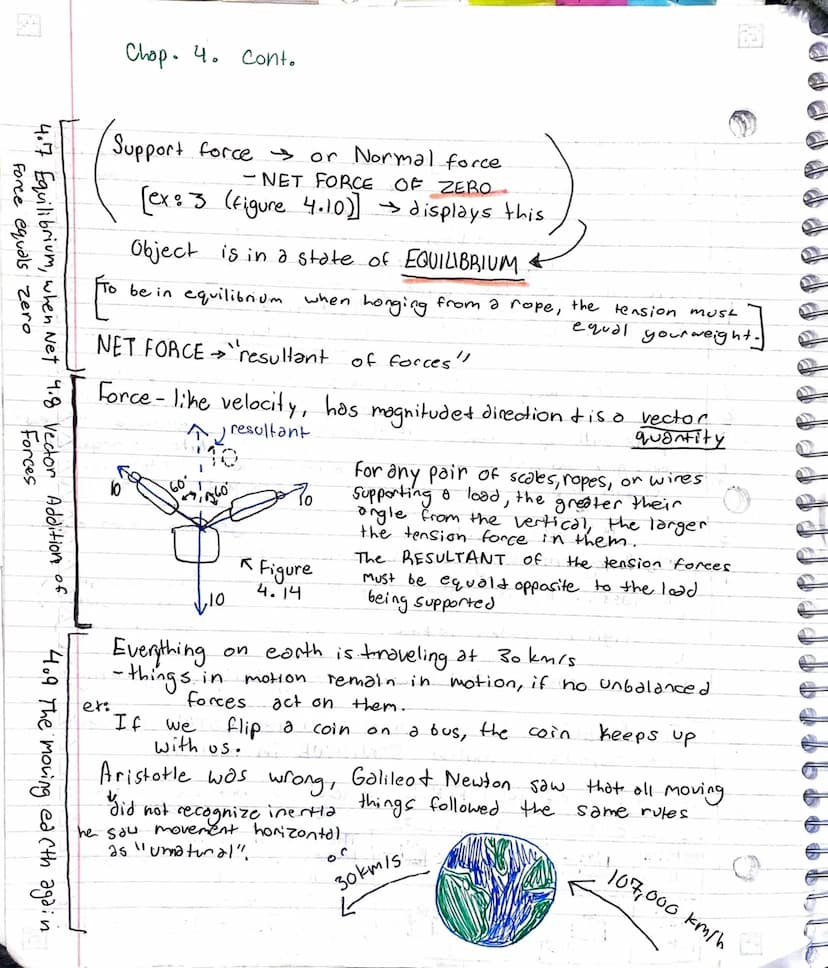 Chap. 4. Cont.
4.7 Equilibrium, when Net
Force equals zero
Support force → or Normal force
- NET FORCE OF ZERO
[ex: 3 (figure 4.10)] → displays this
Object is in a state of EQUILIBRIUM
[To be in equilibrium when hanging from a rope, the tension must
equal your weight.]
NET FORCE → "resultant of forces"
4.8 Vector Addition of
Forces
Force - like velocity, has magnitude + direction + is a vector
quantity
resultant
10
60°
60°
10
10
10
Figure
4.14
For any pair of scales, ropes, or wires
supporting a load, the greater their
angle from the vertical, the larger
the tension force in them.
The RESULTANT of the tension forces
must be equal + opposite to the load
being supported
4.9 The moving earth again
Everything on earth is traveling at 30 km/s
- things in motion remain in motion, if no unbalanced
forces act on them.
ex:
If we flip a coin on a bus, the coin keeps up
with us.
Aristotle was wrong, Galileo + Newton saw that all moving
things followed the same rules
did not recognize inertia
he saw movement horizontal
as "unatural".
or
30 km/s
107,000 km/h